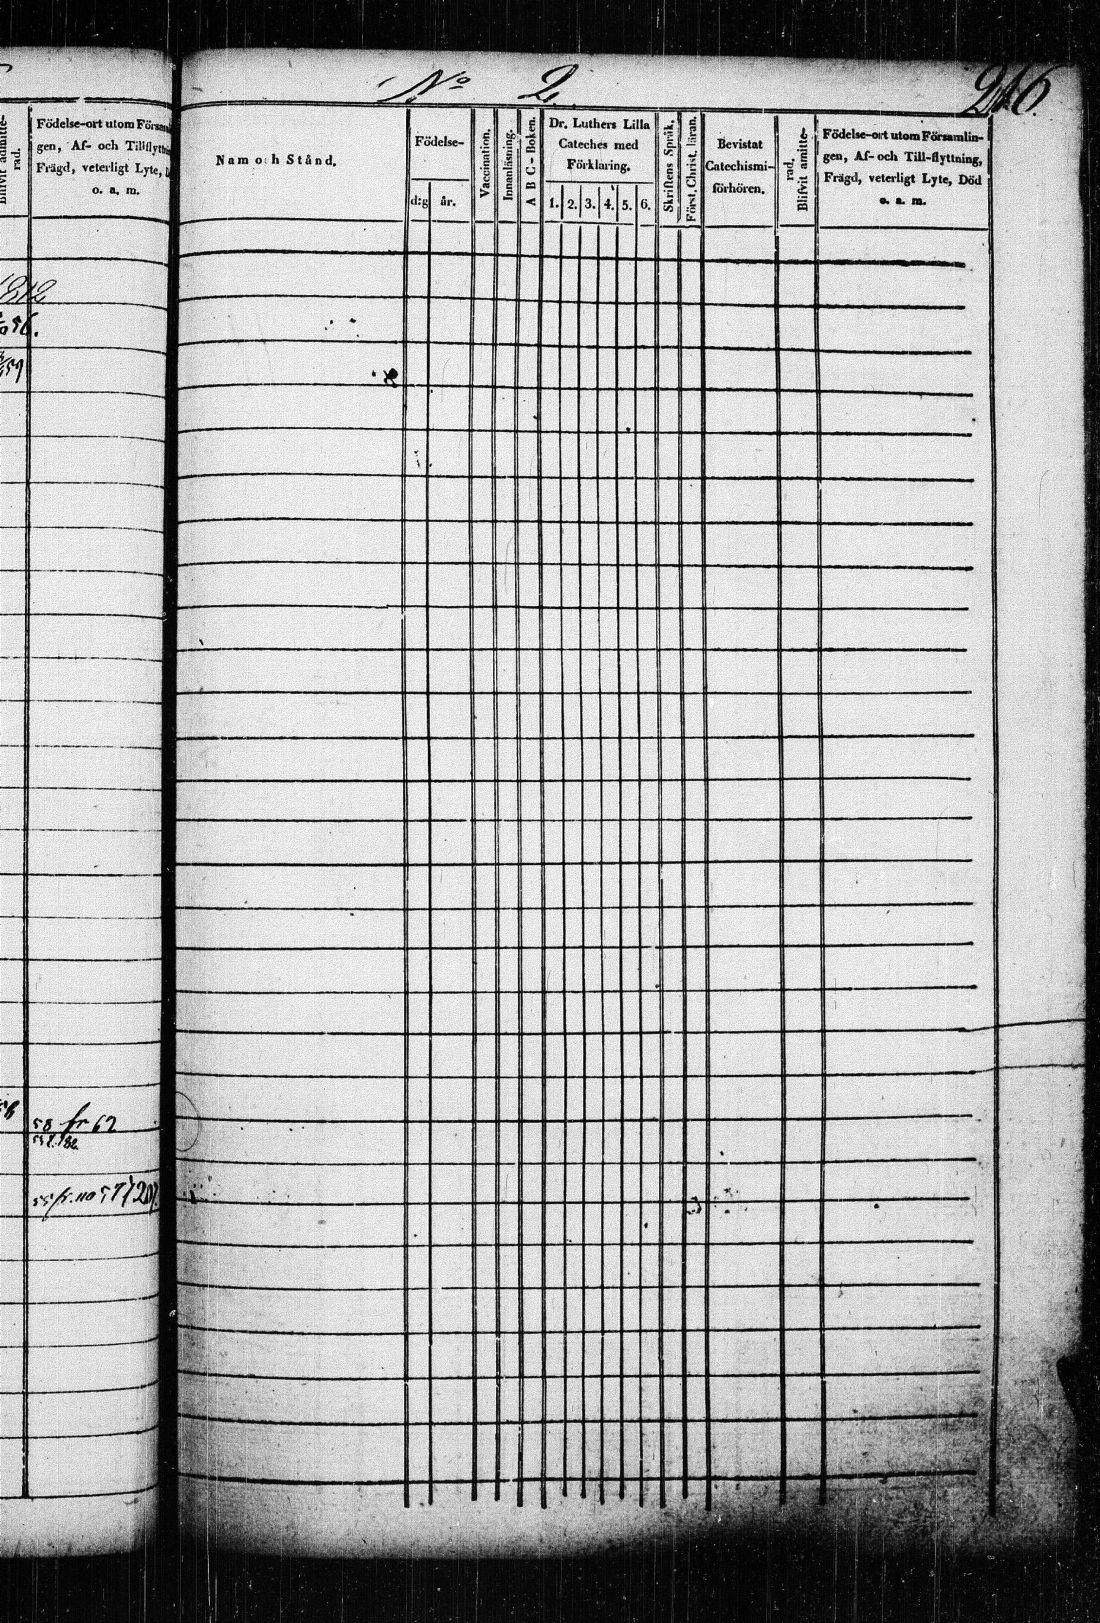 Blifvit admitte-
rad.
Födelse-ort utom Försam
gen, Af- och Tillflyttn
Frägd, veterligt Lyte,
o. a. m.
1812
56.
59
58 fr 62
55 fr. 110 57
No 2.
216.
Namn och Stånd.
Födelse-
d:g år.
Vaccination.
Innanläsning.
A B C-Boken.
Dr. Luthers Lilla
Cateches med
Förklaring.
1. 2. 3. 4. 5. 6.
Skriftens Språk.
Först. Christ. läran.
Bevistat
Catechismi-
förhören.
Blifvit amitte-
rad.
Födelse-ort utom Församlin-
gen, Af- och Till-flyttning,
Frägd, veterligt Lyte, Död
o. a. m.